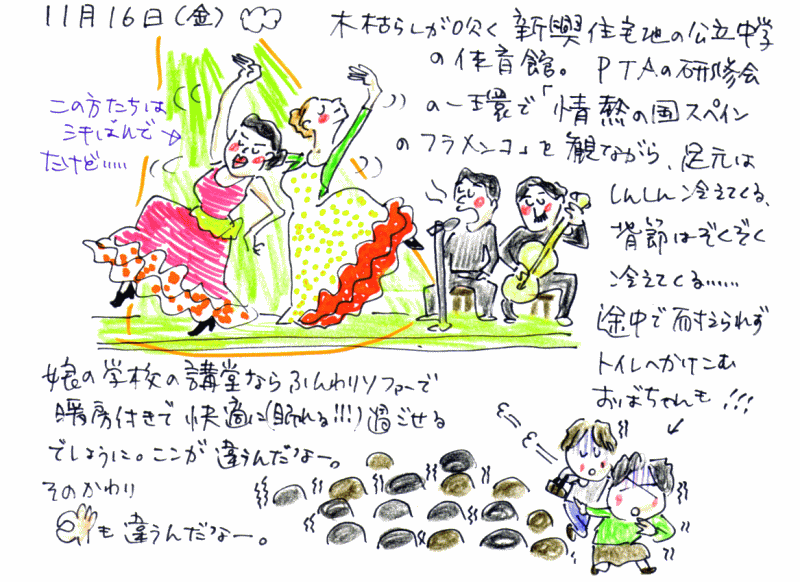 11月16日(金)
木枯らしが吹く新興住宅地の公立中学
の体育館。PTAの研修会
の一環で「情熱の国スペイン
のフラメンコ」を観ながら、足元は
しんしん冷えてくる、
背筋はぞくぞく
冷えてくる……
途中で耐えられず
トイレへかけこむ
おばちゃんも!!!
この方たちは
汗ばんで
だけど……
娘の学校の講堂ならふんわりソファーで
暖房付きで快適に(眠れる!!!)過ごせる
でしょうに。ここが違うんだなー。
そのかわり
も違うんだなー。